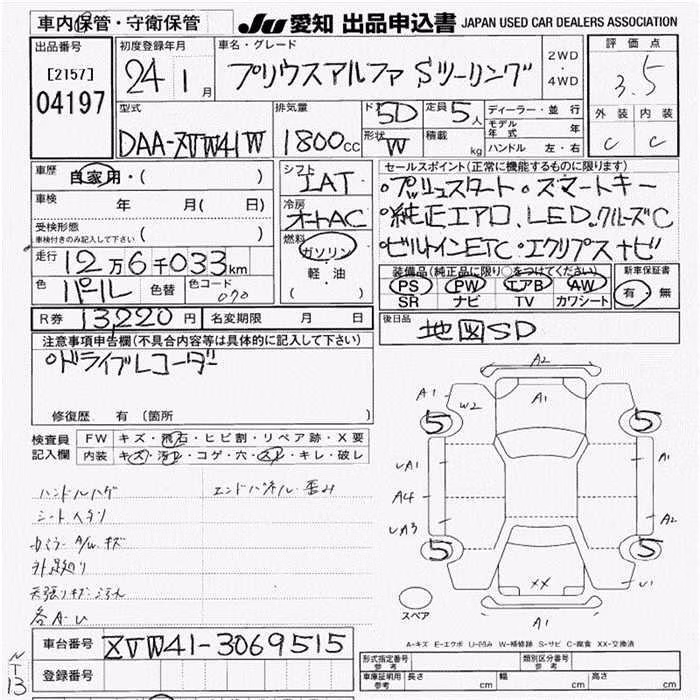 車内保管・守衛保管
JU 愛知 出品申込書 JAPAN USED CAR DEALERS ASSOCIATION
出品番号
[2157]
04197
初度登録年月
24 1 月
車名・グレード
プリウスアルファ Sツーリング
2WD
・
4WD
評価点
3.5
外装 内装
C C
型式
DAA-ZVW41W
排気量
1800cc
ドア 5D
形状 W
定員 5人
積載 kg
ディーラー・並行
モデル年式 年
ハンドル 左・右
車歴
自家用・( )
車検 年 月( 日)
受検形態
車検付きのみ記入して下さい ( )
走行 12万6千033km
色 パール 色替 色コード 070
シフト
IAT
冷房
オートAC
燃料
ガソリン
・
軽・油
( )
セールスポイント(正常に機能するものに限ります)
・プッシュスタート・スマートキー
・純正エアロ、LED、クルーズC
・ビルトインETC・エクリプスナビ
装備品(純正品に限り○をつけてください)
PS PW エアB AW
SR ナビ TV カワシート
新車保証書
有・無
R券 13,220円 名変期限 月 日
後日品 地図SD
注意事項申告欄(不具合内容等は具体的に記入して下さい)
・ドライブレコーダー
修復歴 有(箇所 )
検査員
記入欄
FW キズ・飛石・ヒビ割・リペア跡・X要
内装 キズ・汚レ・コゲ・穴・スレ・キレ・破レ
ハンドルハゲ エンドパネル歪み
シートヘタリ
カラー A/W キズ
各A・U
A2
A1
W2
A1
5
5
UA1
A1
A4
UA3
A2
5
5
XX
U1
A1
スペア
A-キズ E-エクボ U-凹み W-補修跡 S-サビ C-腐食 XX-交換済
車台番号 ZVW41-3069515
登録番号
N
T
13
形式指定番号
参考
類別区分番号
参考
車庫証明用
参考
長さ cm 幅 cm 高さ cm